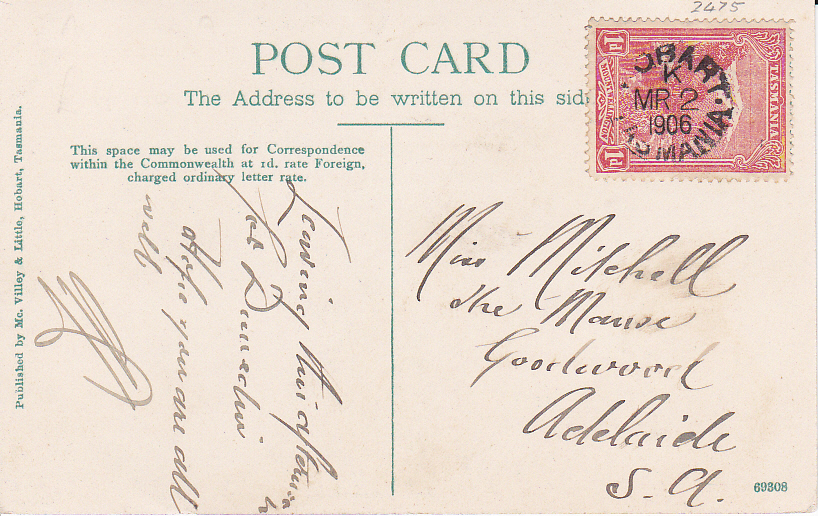 2475
POST CARD
The Address to be written on this sid
This space may be used for Correspondence
within the Commonwealth at 1d. rate Foreign,
charged ordinary letter rate.
Leaving this afternoon
for Dunedin
Hope you are all
well
Miss Mitchell
The Manse
Goodwood
Adelaide
S. A.
1D
TASMANIA
1D
HOBART
K
MR 2
1906
TASMANIA
Published by Mc. Villey & Little, Hobart, Tasmania.
69308